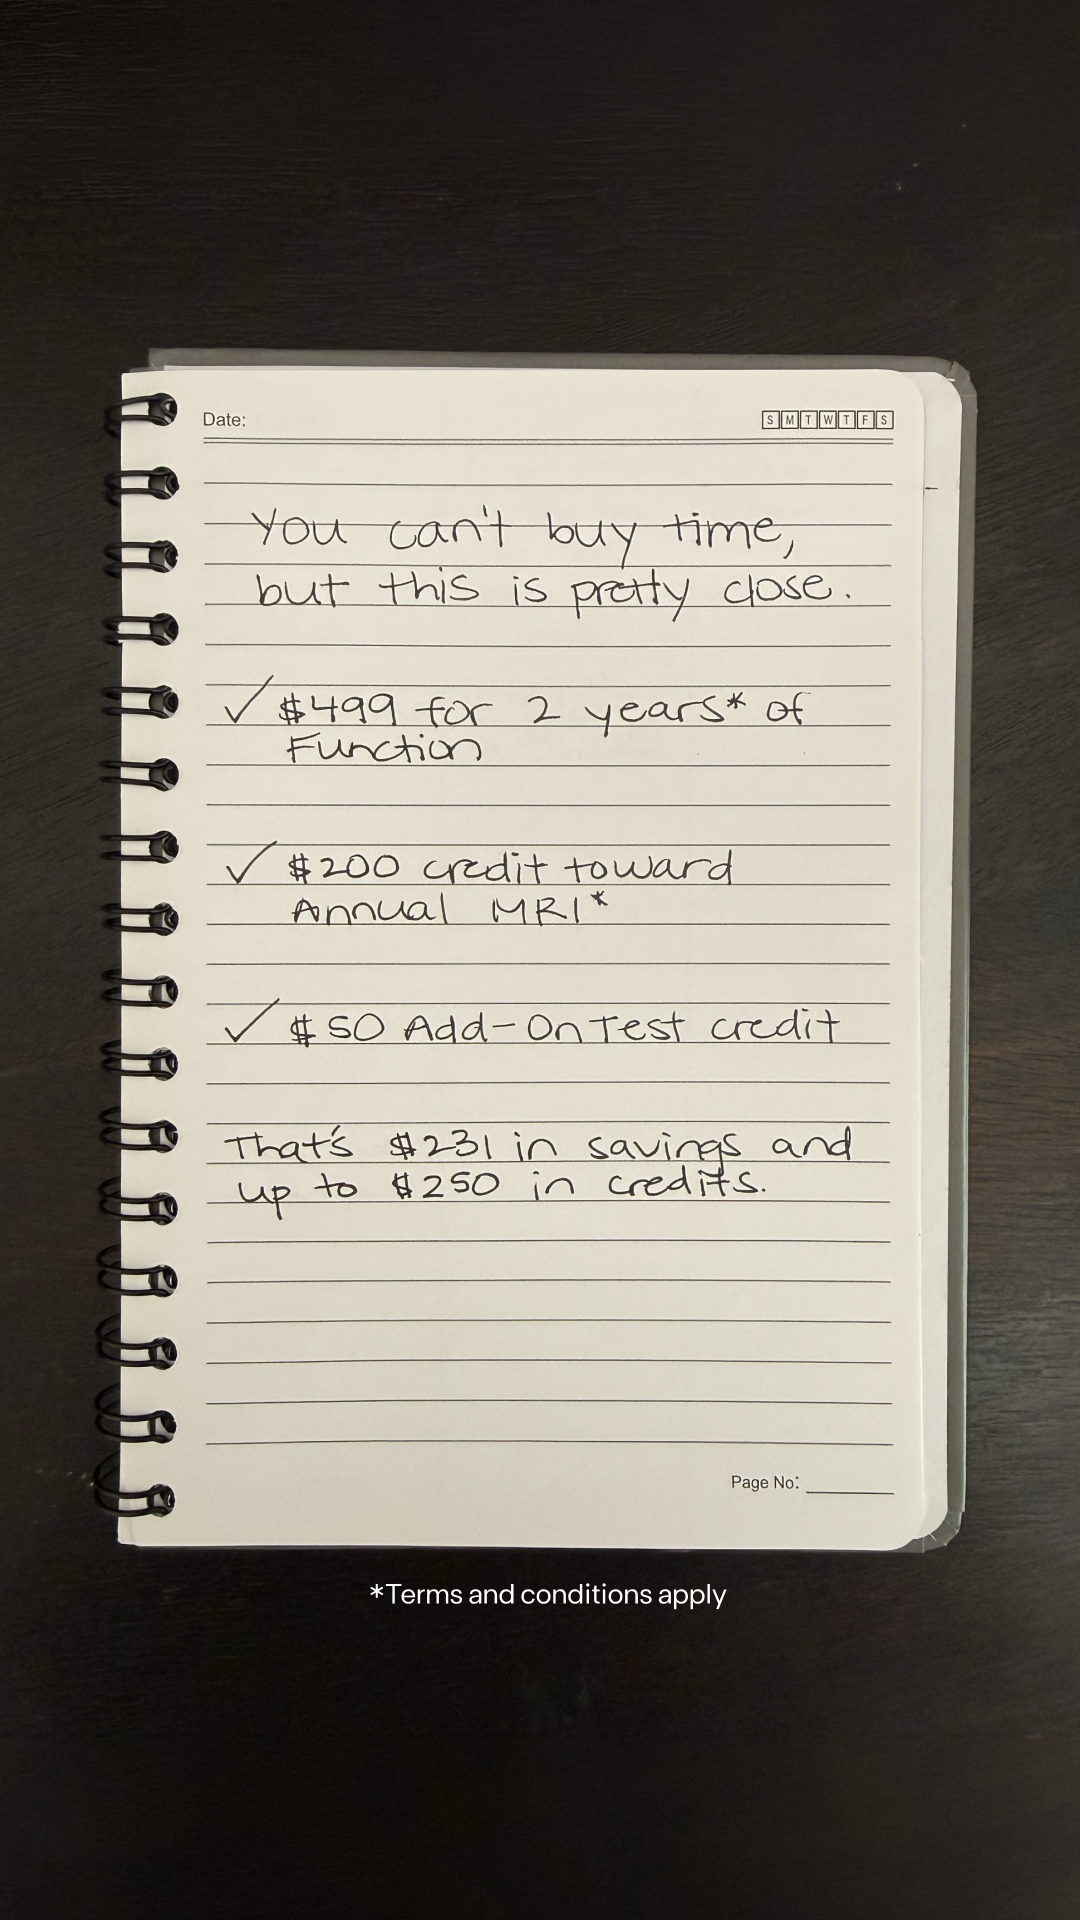 Date:
S M T W T F S
You can't buy time,
but this is pretty close.
✓ $499 for 2 years* of
Function
✓ $200 credit toward
Annual MRI*
✓ $50 Add-On Test credit
That's $231 in savings and
up to $250 in credits.
Page No:
*Terms and conditions apply